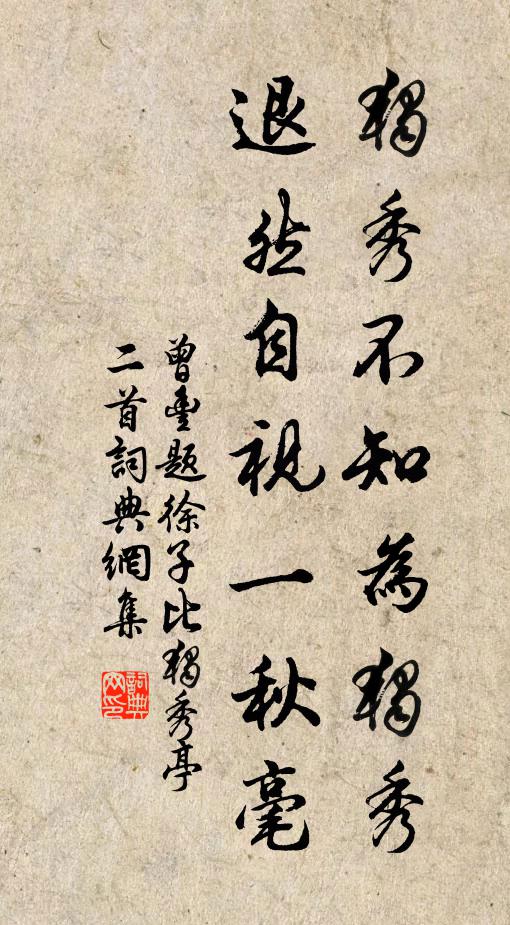 獨秀不知為獨秀
退然自視一秋毫
曾豐題徐子比獨秀亭
二首詞典網集
詞典
网印